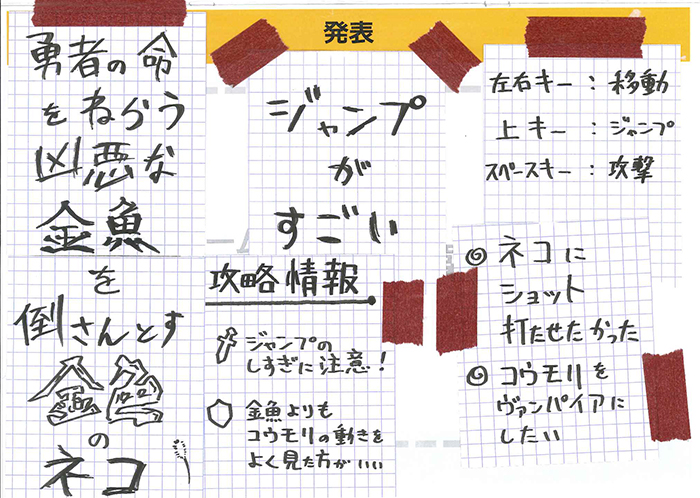 発表
勇者の命
をねらう
凶悪な
金魚
を
倒さんとす
の
ネコ
ジャンプ
が
すごい
攻略情報
ジャンプの
しすぎに注意!
金魚よりも
コウモリの動きを
よく見た方がいい
左右キー:移動
上キー:ジャンプ
スペースキー:攻撃
◎ネコに
ショット
打たせたかった
◎コウモリを
ヴァンパイアに
したい